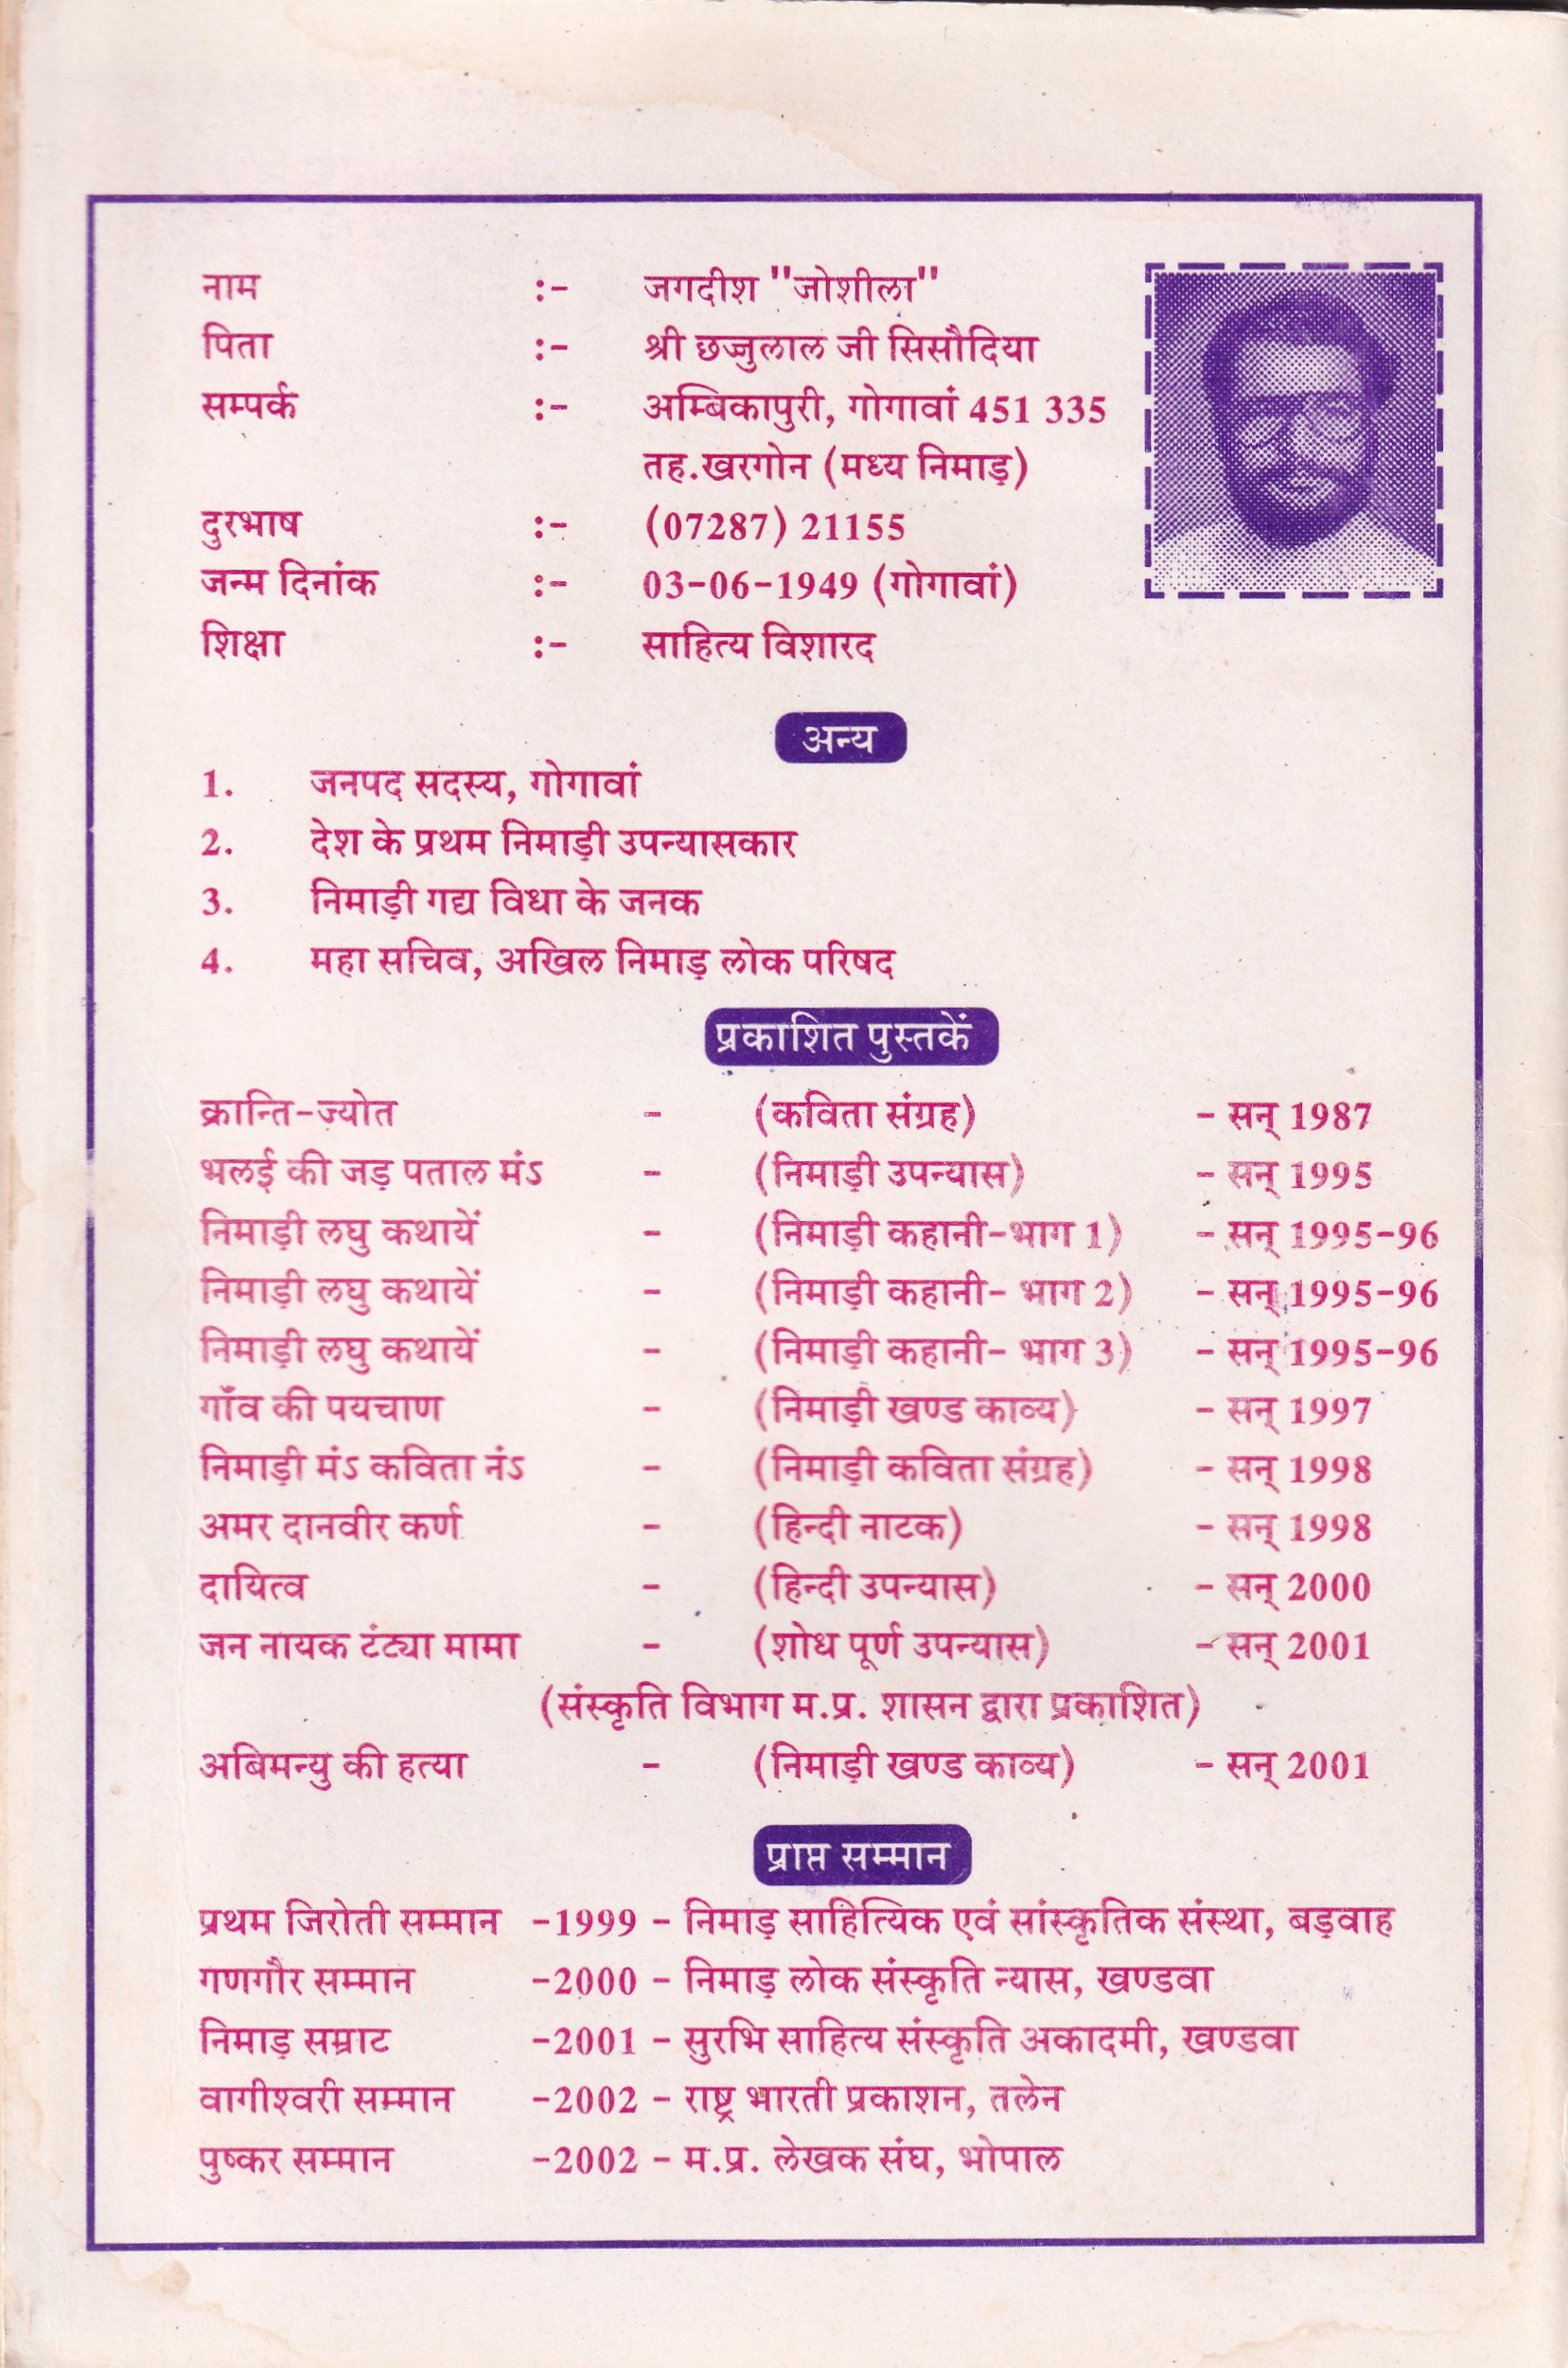 नाम :- जगदीश "जोशीला"
पिता :- श्री छज्जुलाल जी सिसौदिया
सम्पर्क :- अम्बिकापुरी, गोगावां 451 335
तह.खरगोन (मध्य निमाड़)
दुरभाष :- (07287) 21155
जन्म दिनांक :- 03-06-1949 (गोगावां)
शिक्षा :- साहित्य विशारद
अन्य
1. जनपद सदस्य, गोगावां
2. देश के प्रथम निमाड़ी उपन्यासकार
3. निमाड़ी गद्य विधा के जनक
4. महा सचिव, अखिल निमाड़ लोक परिषद
प्रकाशित पुस्तकें
क्रान्ति-ज्योत - (कविता संग्रह) - सन् 1987
भलई की जड़ पताल मंऽ - (निमाड़ी उपन्यास) - सन् 1995
निमाड़ी लघु कथायें - (निमाड़ी कहानी-भाग 1) - सन् 1995-96
निमाड़ी लघु कथायें - (निमाड़ी कहानी- भाग 2) - सन् 1995-96
निमाड़ी लघु कथायें - (निमाड़ी कहानी- भाग 3) - सन् 1995-96
गाँव की पयचाण - (निमाड़ी खण्ड काव्य) - सन् 1997
निमाड़ी मंऽ कविता नंऽ - (निमाड़ी कविता संग्रह) - सन् 1998
अमर दानवीर कर्ण - (हिन्दी नाटक) - सन् 1998
दायित्व - (हिन्दी उपन्यास) - सन् 2000
जन नायक टंट्या मामा - (शोध पूर्ण उपन्यास) - सन् 2001
(संस्कृति विभाग म.प्र. शासन द्वारा प्रकाशित)
अबिमन्यु की हत्या - (निमाड़ी खण्ड काव्य) - सन् 2001
प्राप्त सम्मान
प्रथम जिरोती सम्मान -1999 - निमाड़ साहित्यिक एवं सांस्कृतिक संस्था, बड़वाह
गणगौर सम्मान -2000 - निमाड़ लोक संस्कृति न्यास, खण्डवा
निमाड़ सम्राट -2001 - सुरभि साहित्य संस्कृति अकादमी, खण्डवा
वागीश्वरी सम्मान -2002 - राष्ट्र भारती प्रकाशन, तलेन
पुष्कर सम्मान -2002 - म.प्र. लेखक संघ, भोपाल